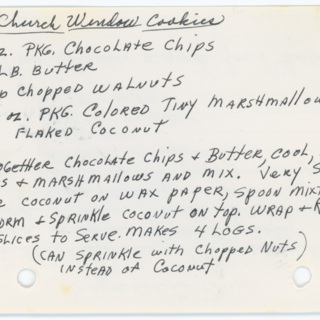 Church Window Cookies
oz. PKG. Chocolate Chips
LB. Butter
Chopped Walnuts
oz. PKG. Colored Tiny Marshmallow
Flaked Coconut
Together Chocolate Chips & Butter, Cool,
& Marshmallows and mix. Very
Coconut on wax paper, spoon
& Sprinkle coconut on top. Wrap &
Slices to Serve. Makes 4 Logs.
(Can sprinkle with Chopped Nuts)
instead of Coconut